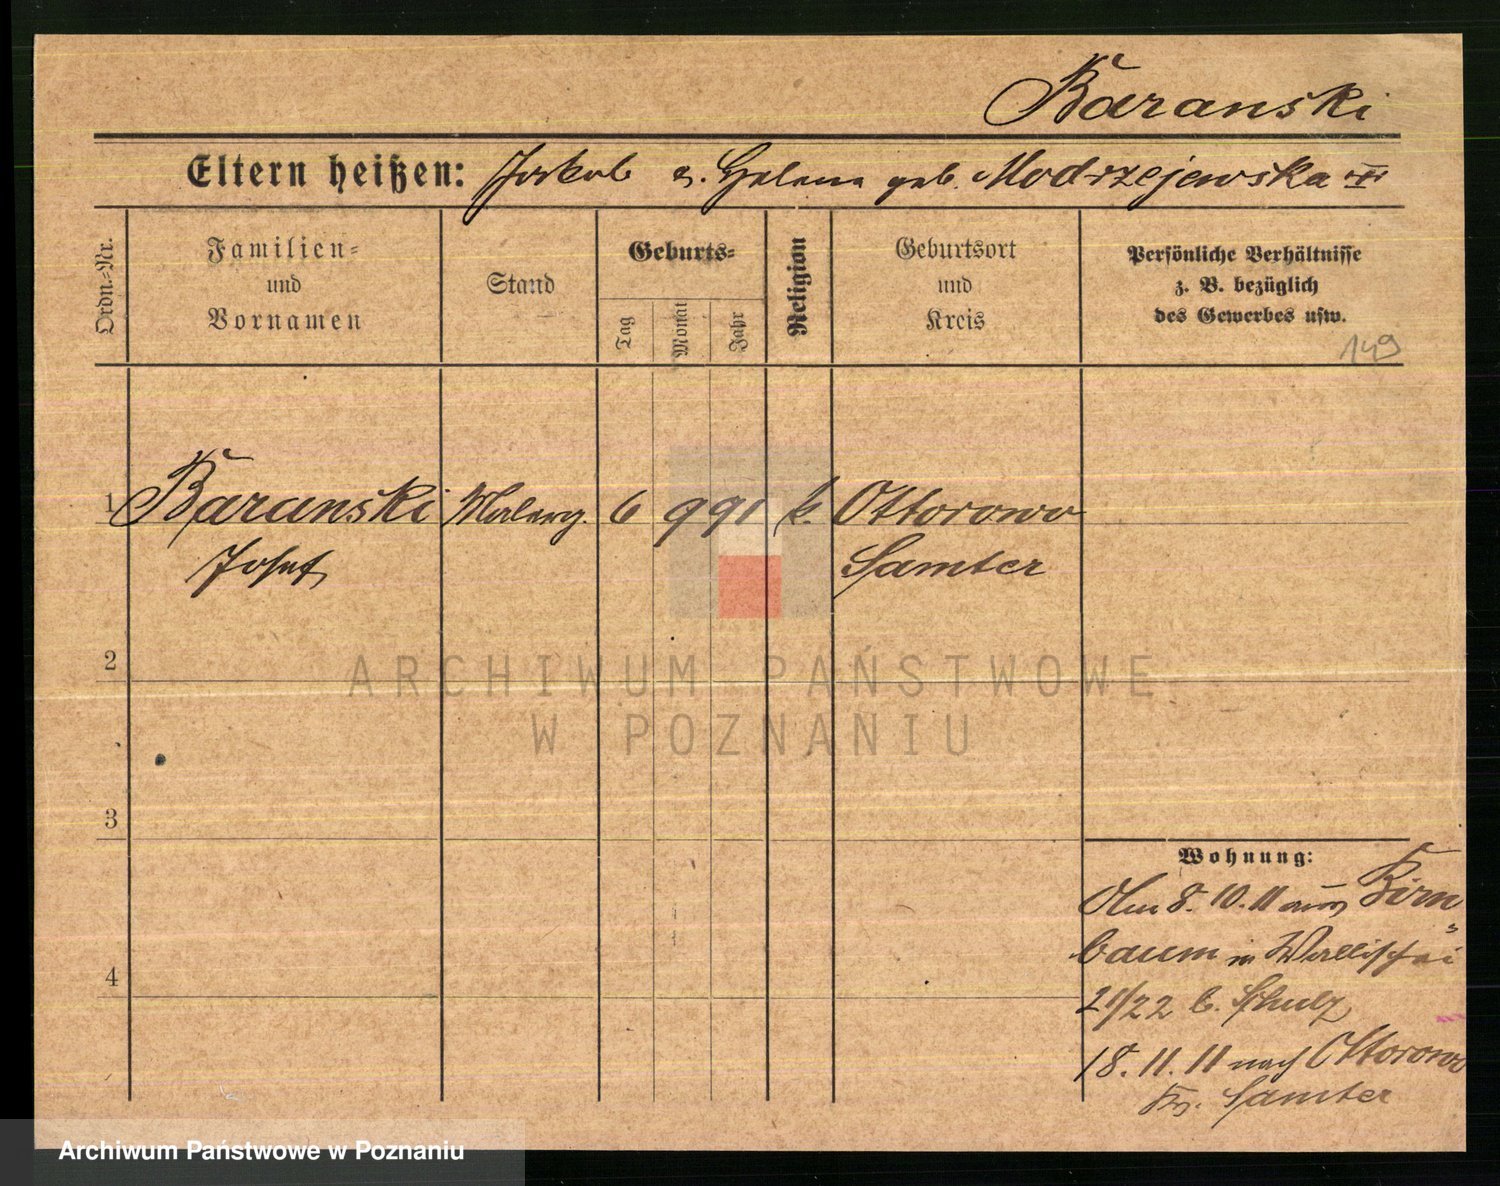 Baranski
Eltern heißen: Jakob u. Helena geb. Modrzejewska
Ordn.-Nr.
Familien-
und
Vornamen
Stand
Geburts-
Tag
Monat
Jahr
Religion
Geburtsort
und
Kreis
Persönliche Verhältnisse
z. B. bezüglich
des Gewerbes usw.
149
1 Baranski Malerg. 6 9 91 k. Ottorowo
Josef Samter
2
ARCHIWUM PAŃSTWOWE
W POZNANIU
3
4
Wohnung:
Am 8.10.11 aus Birn
baum in Wallischei
21/22 b. Schulz
18.11.11 nach Ottorowo
Kr. Samter
Archiwum Państwowe w Poznaniu